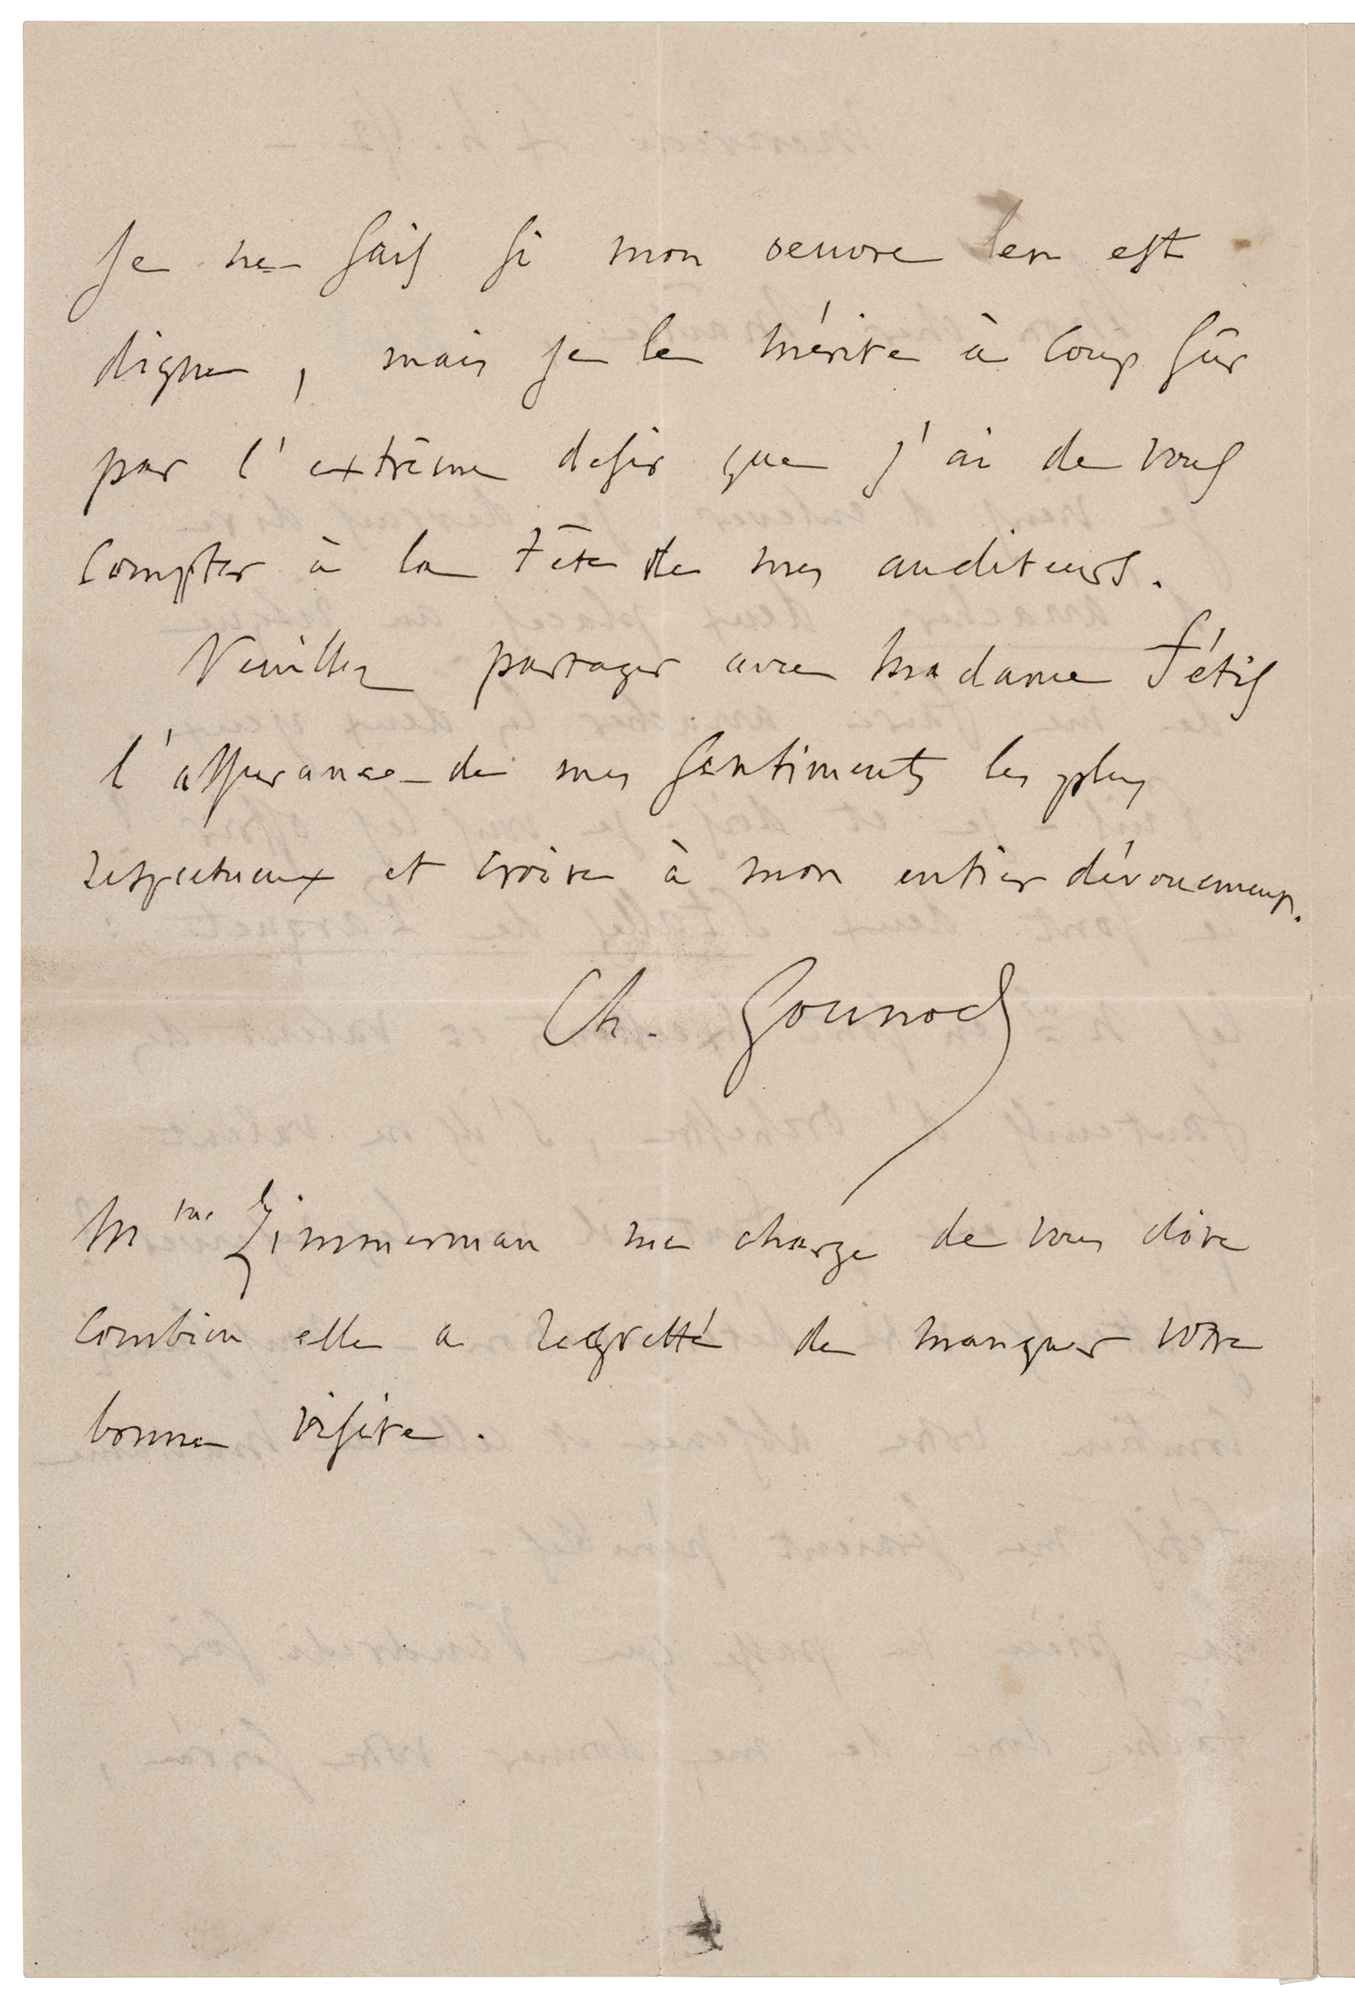 Je ne sais si mon oeuvre en est
digne, mais je le mérite à coup sûr
par l'extrême desir que j'ai de vous
compter à la tête de mes auditeurs.
Veuillez partager avec Madame Fétis
l'assurance de mes sentiments les plus
respectueux et croire à mon entier dévouement.
Ch. Gounod
Mme Zimmerman me charge de vous dire
combien elle a regretté de manquer votre
bonne visite.